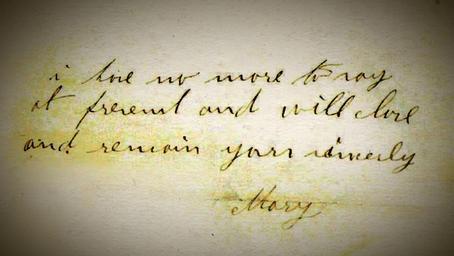 i have no more to say
at present and will close
and remain yours sincerely
Mary